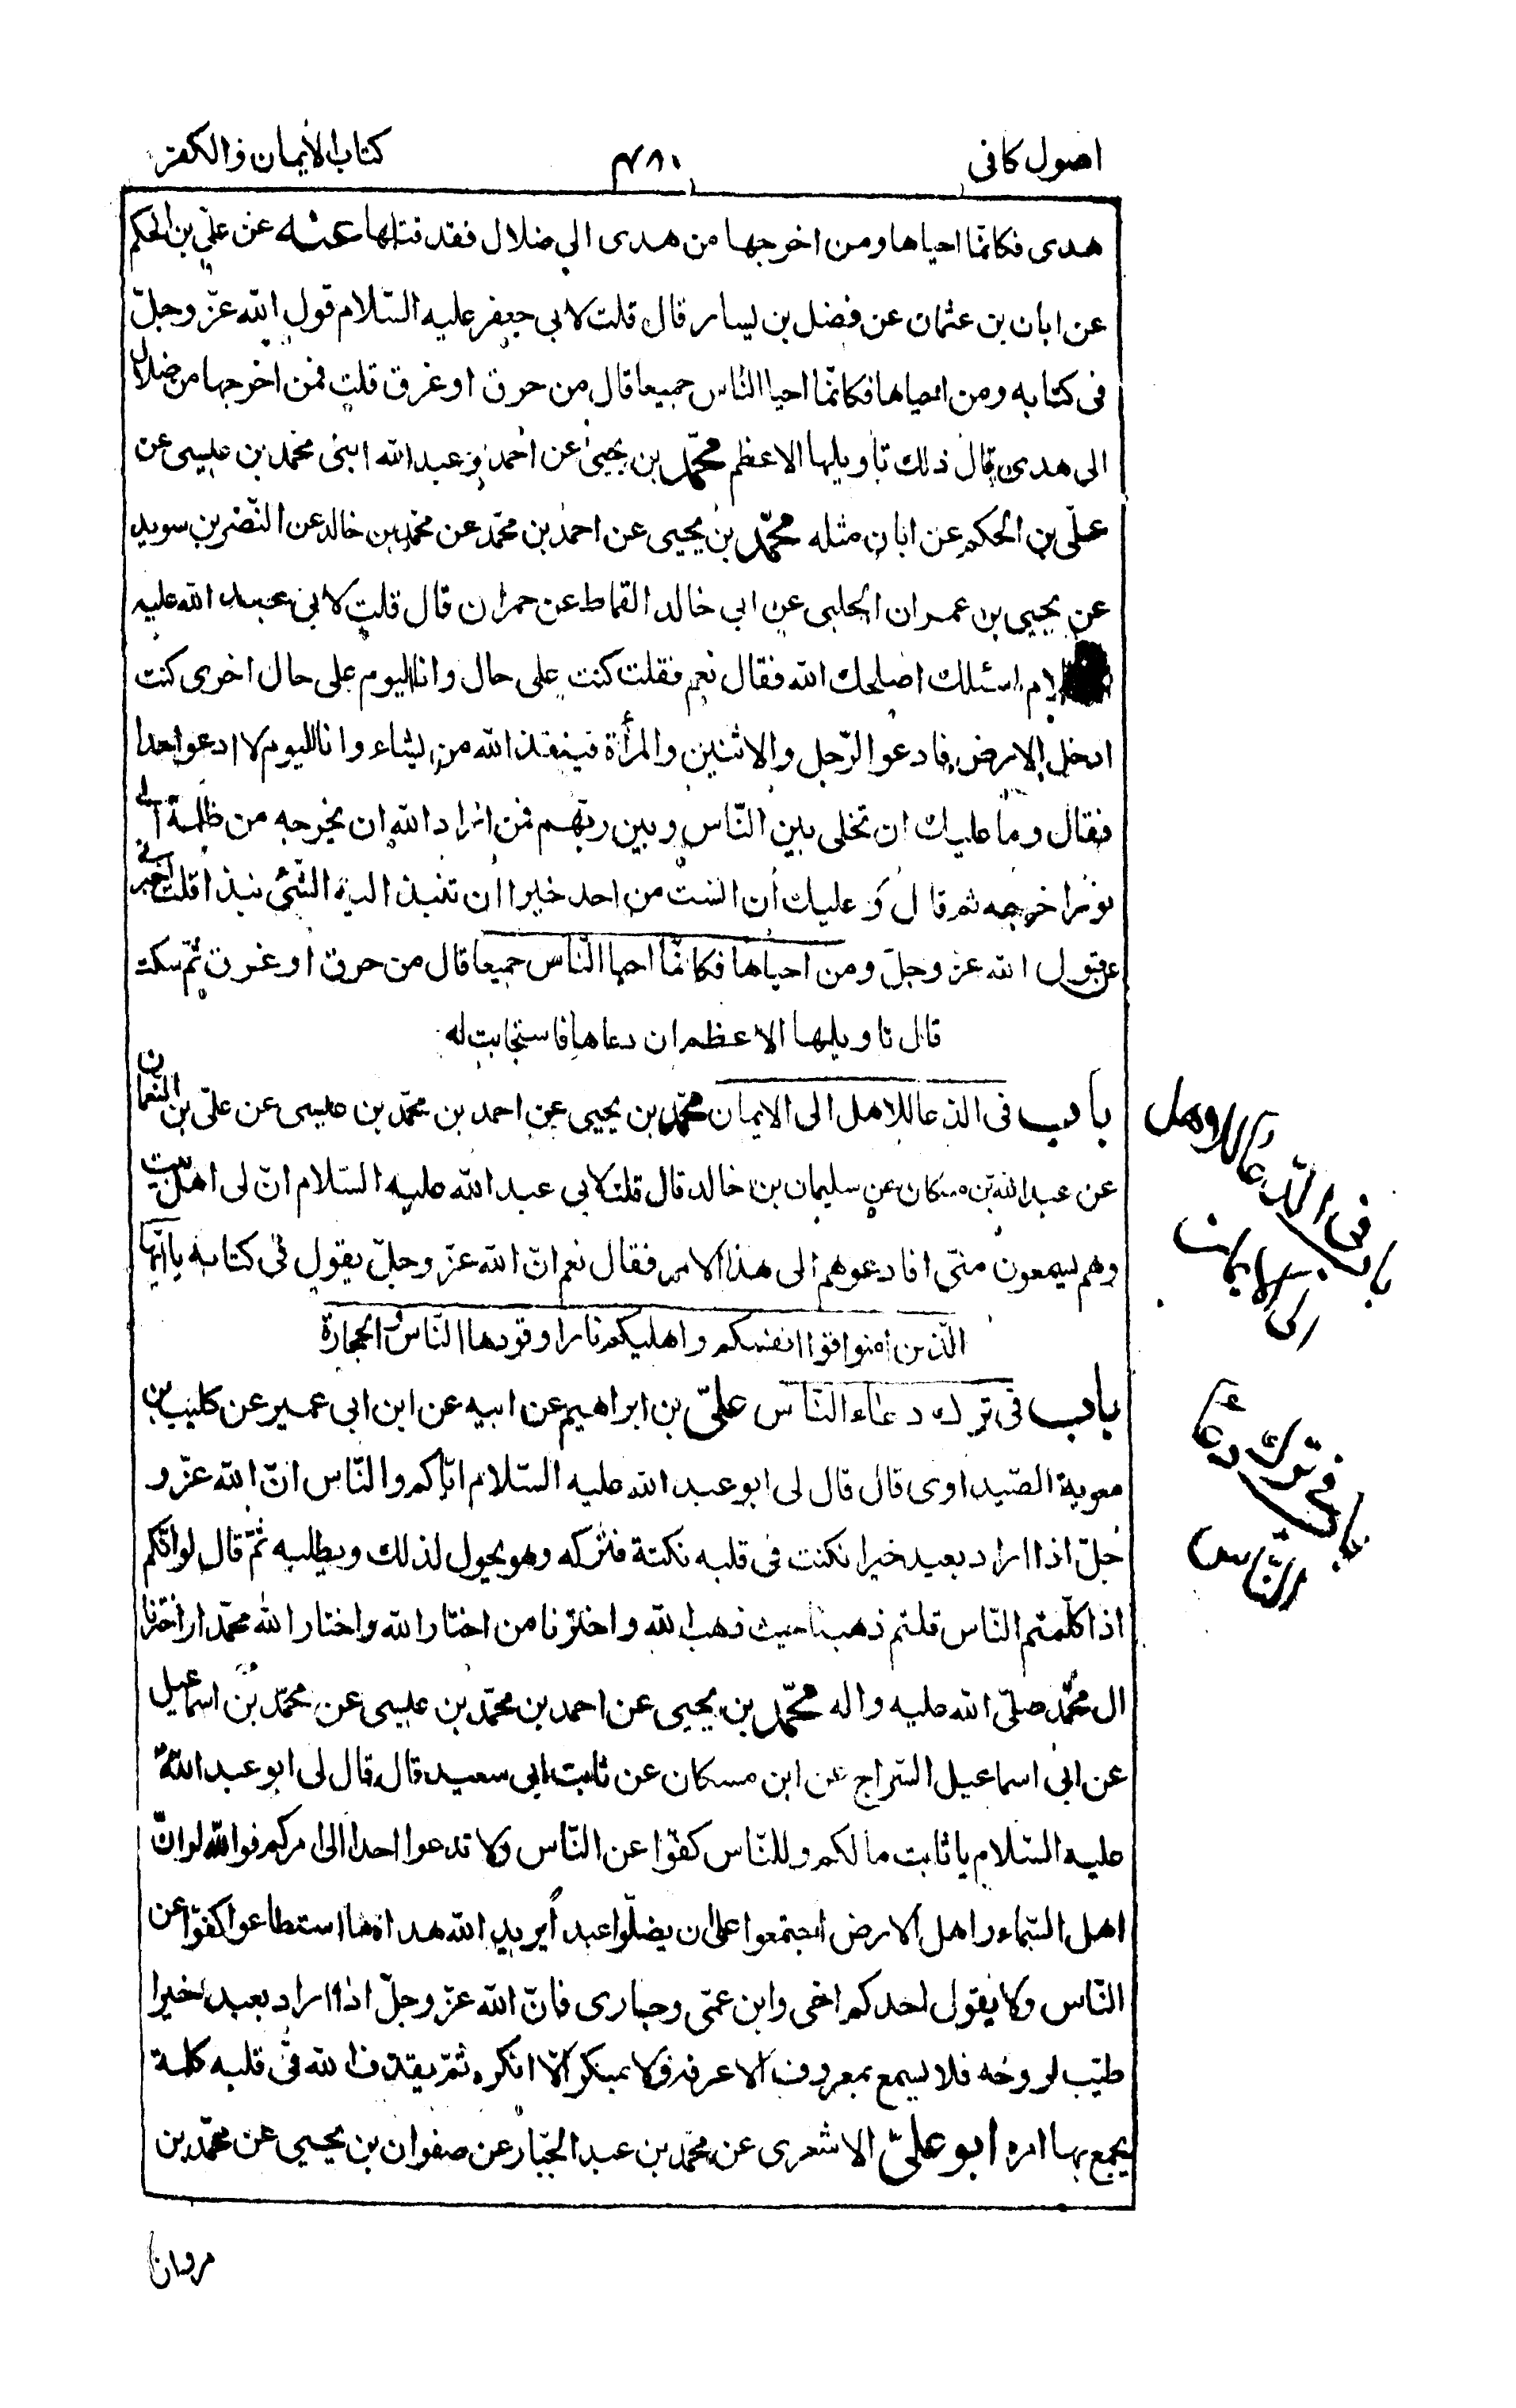 اصول كافى
۴۸۰
كتاب الايمان والكفر
هدى فكانّما احياها ومن اخرجها من هدى الى ضلال فقد قتلها عنه عن علىّ بن الحكم
عن ابان بن عثمان عن فضل بن يسار قال قلت لابى جعفر عليه السّلام قول الله عزّ وجلّ
فى كتابه ومن احياها فكانّما احيا النّاس جميعا قال من حرق او غرق قلت فمن اخرجها من ضلال
الى هدى قال ذلك تأويلها الاعظم محمّد بن يحيى عن احمد و عبد الله ابنى محمد بن عيسى عن
علّى بن الحكم عن ابان مثله محمّد بن يحيى عن احمد بن محمّد عن محمّد بن خالد عن النّضر بن سويد
عن يحيى بن عمران الحلبى عن ابى خالد القماط عن حمران قال قلت لابى عبد الله عليه
لام اسئلك اصلحك الله فقال نعم فقلت كنت على حال وانا اليوم على حال اخرى كنت
ادخل الارض فادعو الرّجل والاثنين والمرأة فينقذ الله من يشاء وانا اليوم لا ادعو احدا
فقال وما عليك ان تخلى بين النّاس وبين ربّهم فمن اراد الله ان يخرجه من ظلمة الى
نور اخرجه ثم قال و عليك ان انست من احد خيرا ان تنبذ اليه الشّئ نبذا قلت اخبرنى
عن قول الله عز وجلّ ومن احياها فكانّما احيا النّاس جميعا قال من حرق او غرق ثمّ سكت
قال تاويلها الاعظم ان دعاها فاستجابت له
باب فى الدّعا للاهل الى الايمان محمّد بن يحيى عن احمد بن محمّد بن عيسى عن علىّ بن النعمان
عن عبد الله بن مسكان عن سليمان بن خالد قال قلت لابى عبد الله عليه السّلام انّ لى اهل بيت
وهم يسمعون منّى افادعوهم الى هذا الامر فقال نعم انّ الله عزّ وجلّ يقول فى كتابه يا ايّها
الّذين امنوا قوا انفسكم واهليكم نارا وقودها النّاس والحجارة
باب فى ترك دعاء النّاس علىّ بن ابراهيم عن ابيه عن ابن ابى عمير عن كليب بن
معوية الصّيداوى قال قال لى ابو عبد الله عليه السّلام ايّاكم والنّاس انّ الله عزّ و
جلّ اذا اراد بعبد خيرا نكتت فى قلبه نكتة فتركه وهو يحول لذلك ويطلبه ثمّ قال لو انّكم
اذا كلّمتم النّاس قلتم ذهبنا حيث ذهب الله واخترنا من اختار الله واختار الله محمّدا واخترنا
ال محمّد صلّى الله عليه واله محمّد بن يحيى عن احمد بن محمّد بن عيسى عن محمّد بن اسماعيل
عن ابى اسماعيل السّراج عن ابن مسكان عن ثابت ابى سعيد قال قال لى ابو عبد الله
عليه السّلام يا ثابت ما لكم وللنّاس كفّوا عن النّاس ولا تدعوا احدا الى امركم فوالله لو انّ
اهل السّماء واهل الارض اجتمعوا على ان يضلّوا عبدا يريد الله هداه ما استطاعوا كفّوا عن
النّاس ولا يقول احدكم اخى وابن عمّى وجارى فانّ الله عزّ وجلّ اذا اراد بعبد خيرا
طيّب روحه فلا يسمع بمعروف الا عرفه ولا بمنكر الّا انكره ثمّ يقذف الله فى قلبه كلمة
يجمع بها امره ابو علىّ الاشعرى عن محمّد بن عبد الجبّار عن صفوان بن يحيى عن محمّد بن
مروان
باب فى الدّعا للاهل
الى الايمان
باب فى ترك دعاء
النّاس